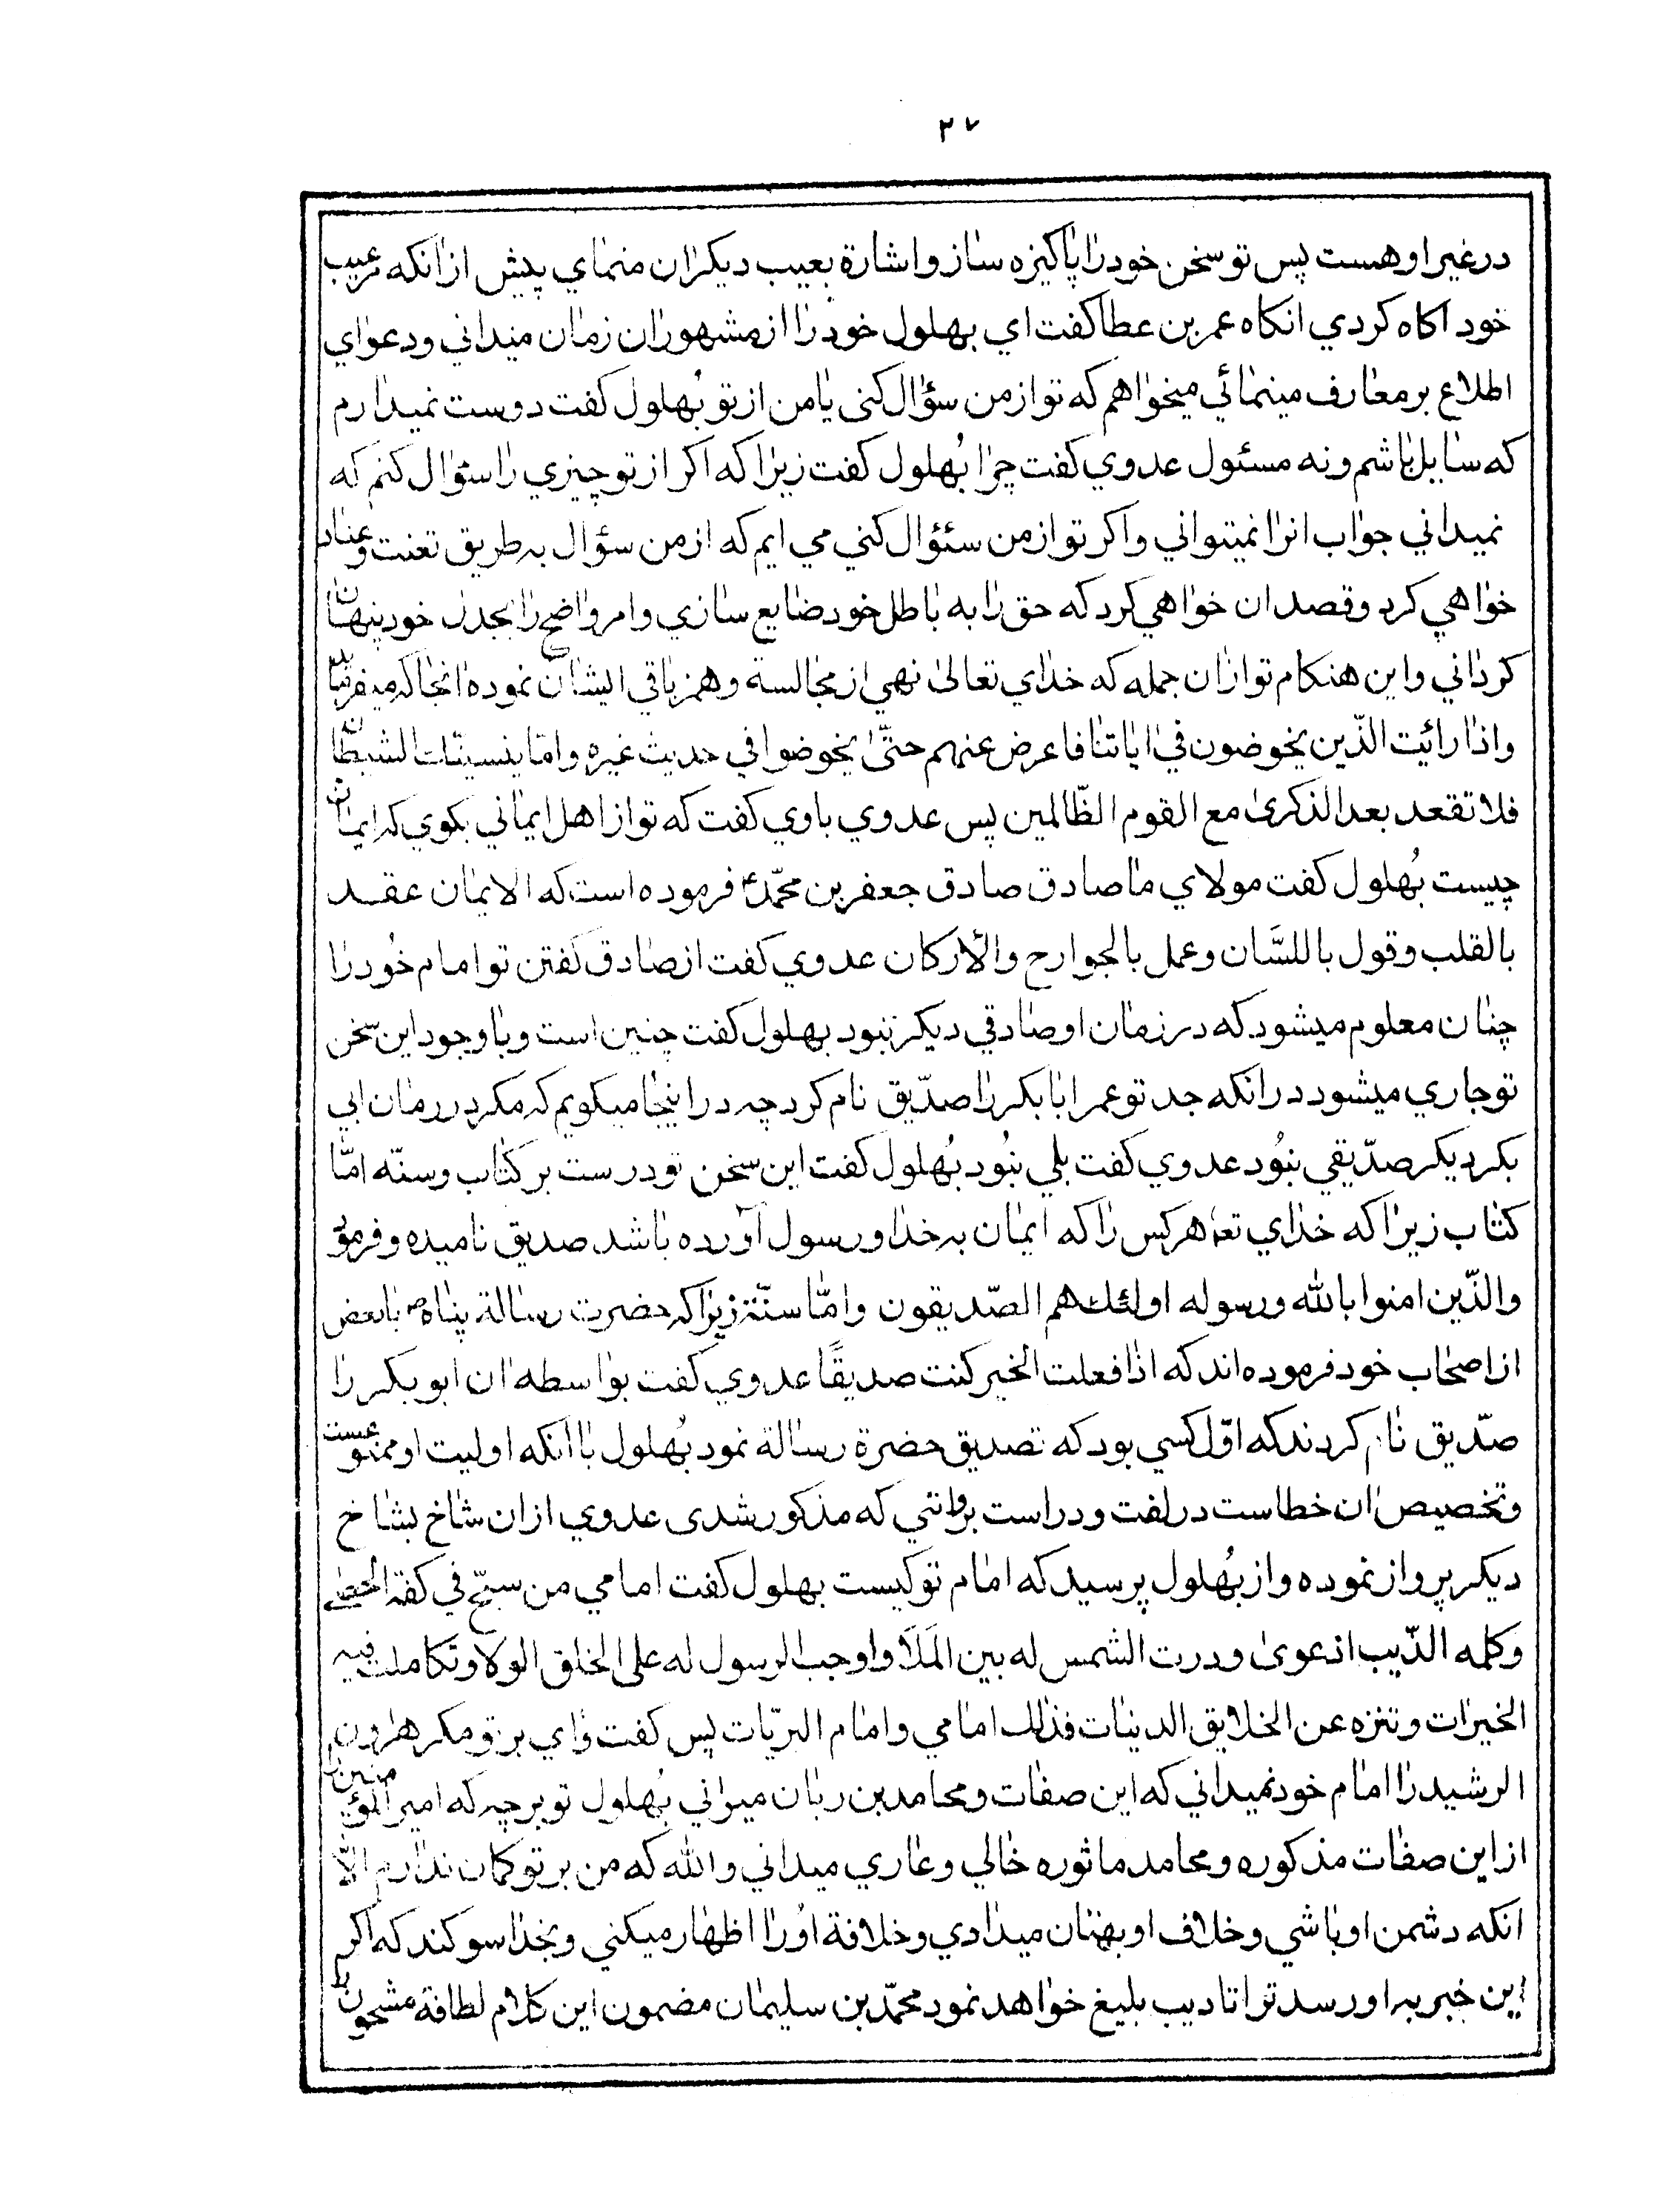 ۳۷
درغیر او هست پس تو سخن خود را پاکیزه ساز و اشارة بعیب دیکران منمای پیش از انکه مرا بعیب
خود اکاه کردی انکاه عمر بن عطا کفت ای بهلول خود را از مشهوران زمان میدانی و دعوای
اطلاع بر معارف مینمائی میخواهم که تو از من سؤال کنی یا من از تو بُهلول کفت دوست نمیدارم
که سایل باشم و نه مسئول عدوی کفت چرا بُهلول کفت زیرا که اکر از تو چیزی را سؤال کنم که
نمیدانی جواب انرا نمیتوانی واکر تو از من سئؤال کنی می ایم که از من سؤال به طریق تعنت و عناد
خواهی کرد و قصد ان خواهی کرد که حق را به باطل خود ضایع سازی و امر واضح را بجدل خود پنهان
کردانی و این هنکام تو ازان جمله که خدای تعالیٰ نهی از مجالسة و همزباقی ایشان نموده انجا که میفرماید
واذا رائیت الّذین یخوضون فی ایاتنا فاعرض عنهم حتّیٰ یخوضوا فی حدیث غیره وامّا ینسینّات الشیطان
فلا تقعد بعد الذکریٰ مع القوم الظّالمین پس عدوی باوی کفت که تو از اهل ایمانی بکوی که ایمان
چیست بُهلول کفت مولای ما صادق صادق جعفر بن محمّد ع فرموده است که الایمان عقد
بالقلب وقول باللسَّان وعمل بالجوارح والأرکان عدوی کفت از صادق کفتن تو امام خُود را
چنان معلوم میشود که در زمان او صادقی دیکر نبود بهلول کفت چنین است و با وجود این سخن
تو جاری میشود در انکه جد تو عمر ابا بکر را صدّیق نام کرد چه در اینجا میکویم که مکر در زمان ابی
بکر دیکر صدّیقی نبُود عدوی کفت بلی نبُود بُهلول کفت این سخن تو درست بر کتاب و سنّه امّا
کتاب زیرا که خدای تعه هر کس را که ایمان به خدا و رسول آورده باشد صدیق نامیده و فرمود
والذّین امنوا بالله ورسوله اولئك هم الصّدیقون وامّا سنّة زیرا که حضرت رسالة پناه ص با بعض
از اصحاب خود فرموده اند که اذا فعلت الخیر کنت صدیقًا عدوی کفت بواسطه ان ابوبکر را
صدّیق نام کردند که اوّل کسی بود که تصدیق حضرة رسالة نمود بُهلول با انکه اولیت او ممنوعست
و تخصیص ان خطاست در لغت و در است بروانتی که مذکور شدی عدوی از ان شاخ بشاخ
دیکر پرواز نموده و از بُهلول پرسید که امام تو کیست بهلول کفت امامی من سبّح فی کفه الحصی
وکلمه الذّیب اذ عویٰ وردت الشمس له بین المَلَا و اوجب الرسول له علی الخلق الولا و تکاملت فیه
الخیرات و تنزه عن الخلایق الدینات فذلك امامی و امام البریّات پس کفت وای بر تو مکر هارون
الرشید را امام خود نمیدانی که این صفات و محامد بن ربان میرانی بُهلول تو بر چه که امیر المؤمنین را
از این صفات مذکوره و محامد ماثوره خالی و عاری میدانی و الله که من بر تو کمان ندارم الّا
انکه دشمن او باشی و خلاف او بهتان میدادی و خلافة اورا اظهار میکنی و بخدا سوکند که اکر
این خبر به او رسد ترا تادیب بلیغ خواهد نمود محمّد بن سلیمان مضمون این کلام لطافة مشحون